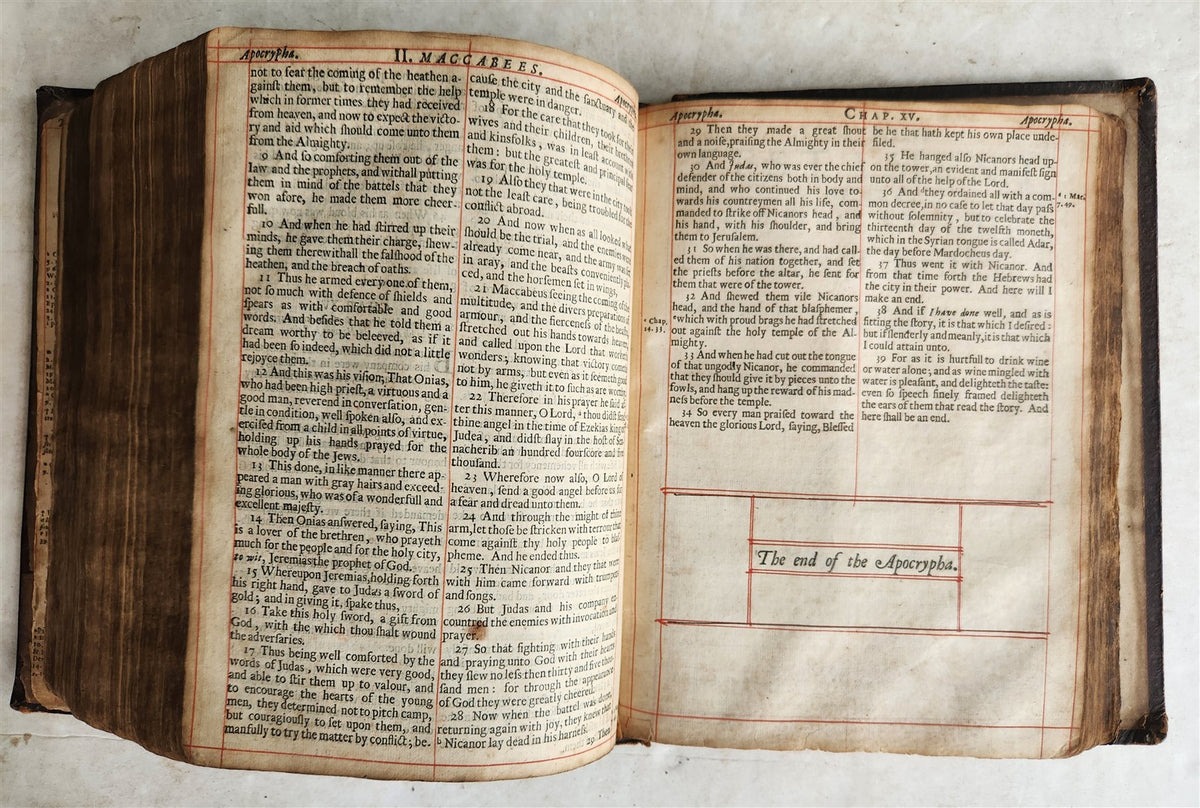 Apocrypha.
II. MACCABEES.
not to fear the coming of the heathen a-
gainſt them, but to remember the help
which in former times they had received
from heaven, and now to expect the victo-
ry and aid which ſhould come unto them
from the Almighty.
9 And ſo comforting them out of the
law and the prophets, and withall putting
them in mind of the battels that they
won afore, he made them more cheer-
full.
10 And when he had ſtirred up their
minds, he gave them their charge, ſhew-
ing them therewithall the falſhood of the
heathen, and the breach of oaths.
11 Thus he armed every one of them,
not ſo much with defence of ſhields and
ſpears as with comfortable and good
words. And beſides that he told them a
dream worthy to be beleeved, as if it
had been ſo indeed, which did not a little
rejoyce them.
12 And this was his viſion; That Onias,
who had been high prieſt, a virtuous and a
good man, reverend in converſation, gen-
tle in condition, well ſpoken alſo, and ex-
erciſed from a child in all points of virtue,
holding up his hands prayed for the
whole body of the Jews.
13 This done, in like manner there ap-
peared a man with gray hairs and exceed-
ing glorious, who was of a wonderfull and
excellent majeſty.
14 Then Onias anſwered, ſaying, This
is a lover of the brethren, who prayeth
much for the people and for the holy city,
to wit, Jeremias the prophet of God.
15 Whereupon Jeremias, holding forth
his right hand, gave to Judas a ſword of
gold; and in giving it, ſpake thus,
16 Take this holy ſword, a gift from
God, with the which thou ſhalt wound
the adverſaries.
17 Thus being well comforted by the
words of Judas, which were very good,
and able to ſtir them up to valour, and
to encourage the hearts of the young
men, they determined not to pitch camp,
but couragiouſly to ſet upon them, and
manfully to try the matter by conflict; be-
cauſe the city and the ſanctuary and the
temple were in danger.
18 For the care that they took for their
wives and their children, their brethren
and kinsfolks, was in leaſt account with
them: but the greateſt and principal fear
was for the holy temple.
19 Alſo they that were in the city took
not the leaſt care, being troubled for the
conflict abroad.
20 And now when as all looked what
ſhould be the trial, and the enemies were
already come near, and the army was ſet
in aray, and the beaſts conveniently pla-
ced, and the horſemen ſet in wings,
21 Maccabeus ſeeing the coming of the
multitude, and the divers preparations of
armour, and the fierceneſs of the beaſts,
ſtretched out his hands towards heaven,
and called upon the Lord that worketh
wonders, knowing that victory cometh
not by arms, but even as it ſeemeth good
to him, he giveth it to ſuch as are worthy.
22 Therefore in his prayer he ſaid af-
ter this manner, O Lord, thou didſt ſend
thine angel in the time of Ezekias king of
Judea, and didſt ſlay in the hoſt of Sen-
nacherib an hundred fourſcore and five
thouſand.
23 Wherefore now alſo, O Lord of
heaven, ſend a good angel before us for
a fear and dread unto them.
24 And through the might of thine
arm, let thoſe be ſtricken with terrour that
come againſt thy holy people to blaſ-
pheme. And he ended thus.
25 Then Nicanor and they that were
with him came forward with trumpets
and ſongs.
26 But Judas and his company en-
countred the enemies with invocation and
prayer.
27 So that fighting with their hands
and praying unto God with their hearts
they ſlew no leſs then thirty and five thou-
ſand men: for through the appearance
of God they were greatly cheered.
28 Now when the battel was done,
returning again with joy, they knew that
b Nicanor lay dead in his harneſs.
29 Then
Apocrypha.
CHAP. XV.
Apocrypha.
29 Then they made a great ſhout
and a noiſe, praiſing the Almighty in their
own language.
30 And Judas, who was ever the chief
defender of the citizens both in body and
mind, and who continued his love to-
wards his countreymen all his life, com-
manded to ſtrike off Nicanors head, and
his hand, with his ſhoulder, and bring
them to Jeruſalem.
31 So when he was there, and had call-
ed them of his nation together, and ſet
the prieſts before the altar, he ſent for
them that were of the tower.
32 And ſhewed them vile Nicanors
head, and the hand of that blaſphemer,
which with proud brags he had ſtretched
out againſt the holy temple of the Al-
mighty.
Chap.
14. 33.
33 And when he had cut out the tongue
of that ungodly Nicanor, he commanded
that they ſhould give it by pieces unto the
fowls, and hang up the reward of his mad-
neſs before the temple.
34 So every man praiſed toward the
heaven the glorious Lord, ſaying, Bleſſed
be he that hath kept his own place unde-
filed.
35 He hanged alſo Nicanors head up-
on the tower, an evident and manifeſt ſign
unto all of the help of the Lord.
36 And they ordained all with a com-
mon decree, in no caſe to let that day paſs
without ſolemnity, but to celebrate the
thirteenth day of the twelfth moneth,
which in the Syrian tongue is called Adar,
the day before Mardocheus day.
1 Mac.
7. 49.
37 Thus went it with Nicanor. And
from that time forth the Hebrews had
the city in their power. And here will I
make an end.
38 And if I have done well, and as is
fitting the ſtory, it is that which I deſired:
but if ſlenderly and meanly, it is that which
I could attain unto.
39 For as it is hurtfull to drink wine
or water alone; and as wine mingled with
water is pleaſant, and delighteth the taſte:
even ſo ſpeech finely framed delighteth
the ears of them that read the ſtory. And
here ſhall be an end.
The end of the Apocrypha.